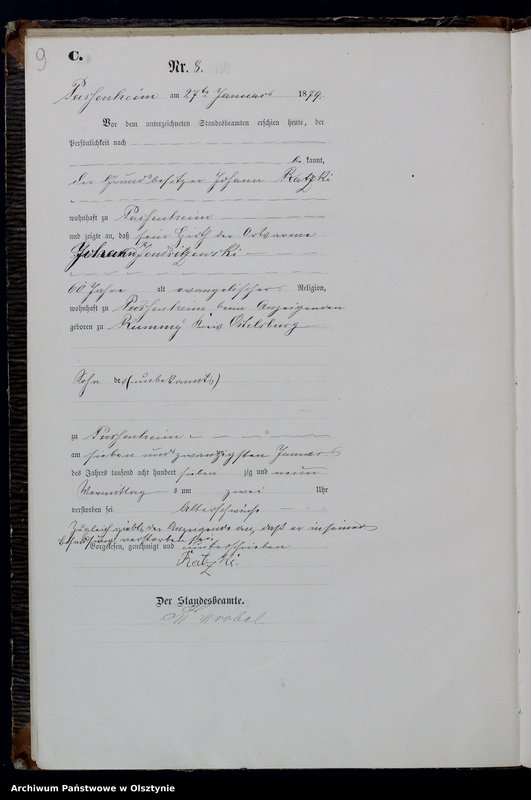 9
C.
Nr. 8.
Passenheim am 27ten Januar 1879.
Vor dem unterzeichneten Standesbeamten erschien heute, der
Persönlichkeit nach
be kannt,
der Grundbesitzer Johann Katzki
wohnhaft zu Passenheim
und zeigte an, daß sein der Ortsarme
Johann
60 Jahre alt evangelischer Religion,
wohnhaft zu Passenheim beim Anzeigenden
geboren zu Rummy Kreis Ortelsburg
Sohn des (unbekannts)
zu Passenheim
am sieben und zwanzigsten Januar
des Jahres tausend acht hundert sieben zig und neun
Vormittag s um zwei Uhr
verstorben sei Altersschwäche
Zugleich der Anzeigende an, daß er in seiner
verstorben sei
Vorgelesen, genehmigt und unterschrieben
Katzki.
Der Standesbeamte.
Wrobel
Archiwum Państwowe w Olsztynie